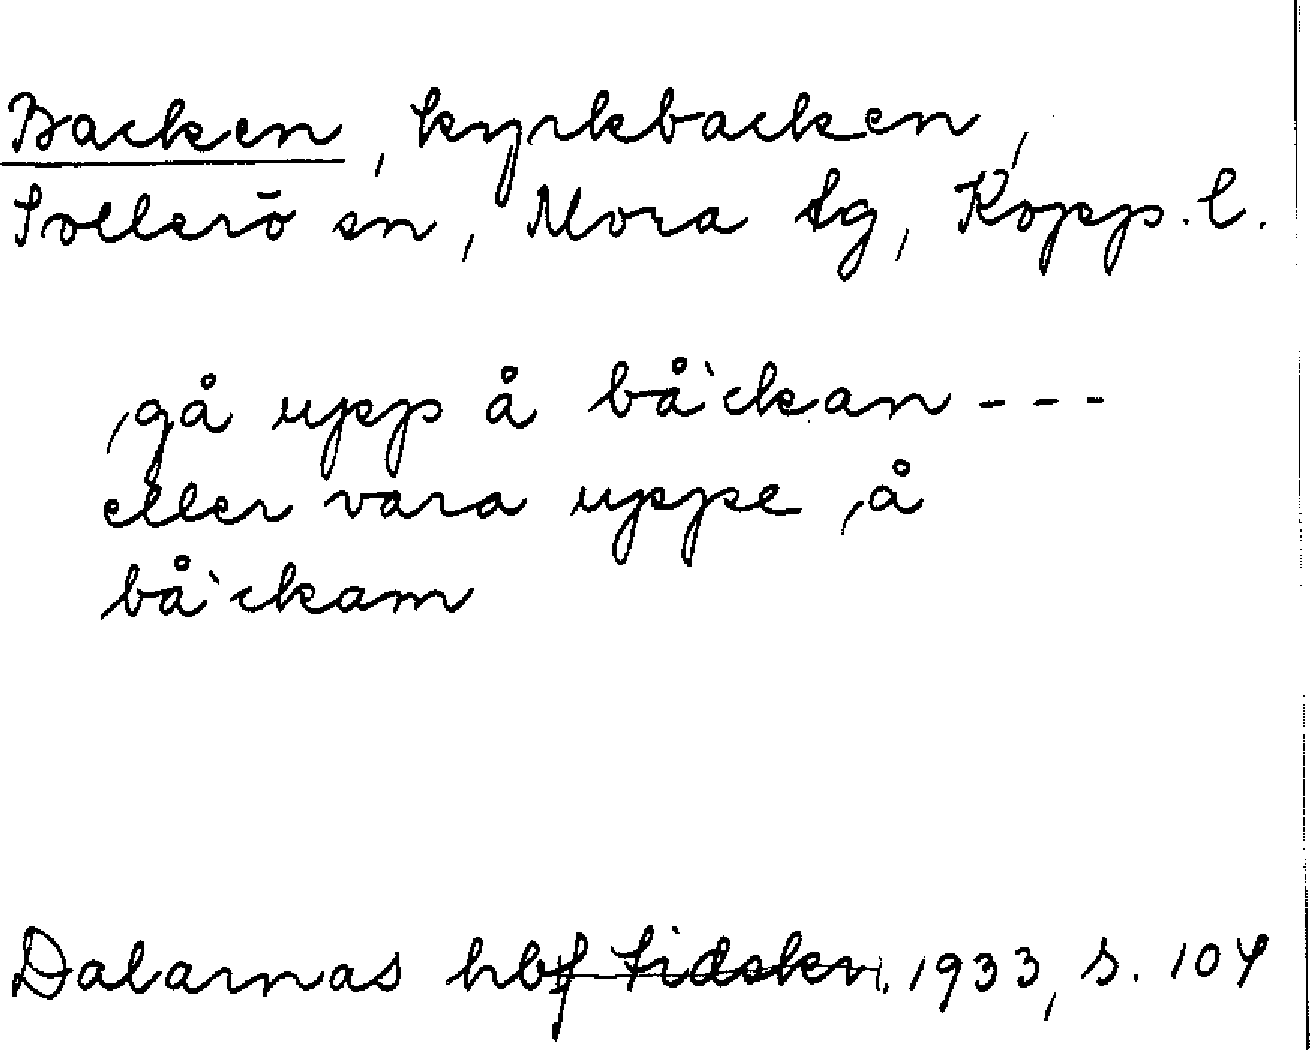 Backen, kyrkbacken,
Sollerö sn, Mora tg, Kopp. l.
,gå upp å bå`ckan - - -
eller vara uppe ,å
bå`ckam
Dalarnas hbf tidskr. 1933, s. 104